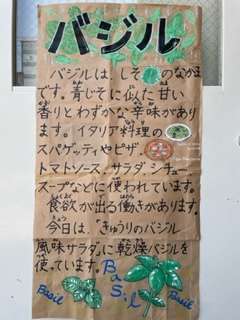 バジル
バジルは、しそのなかま
です。青じそに似た甘い
香りとわずかな辛味があり
ます。イタリア料理の
スパゲッティやピザ、
トマトソース、サラダ、シチュー
スープなどに使われています。
食欲が出る働きがあります。
今日は、「きゅうりのバジル
風味サラダ」に乾燥バジルを
使っています。
Basil
Basil
Basil